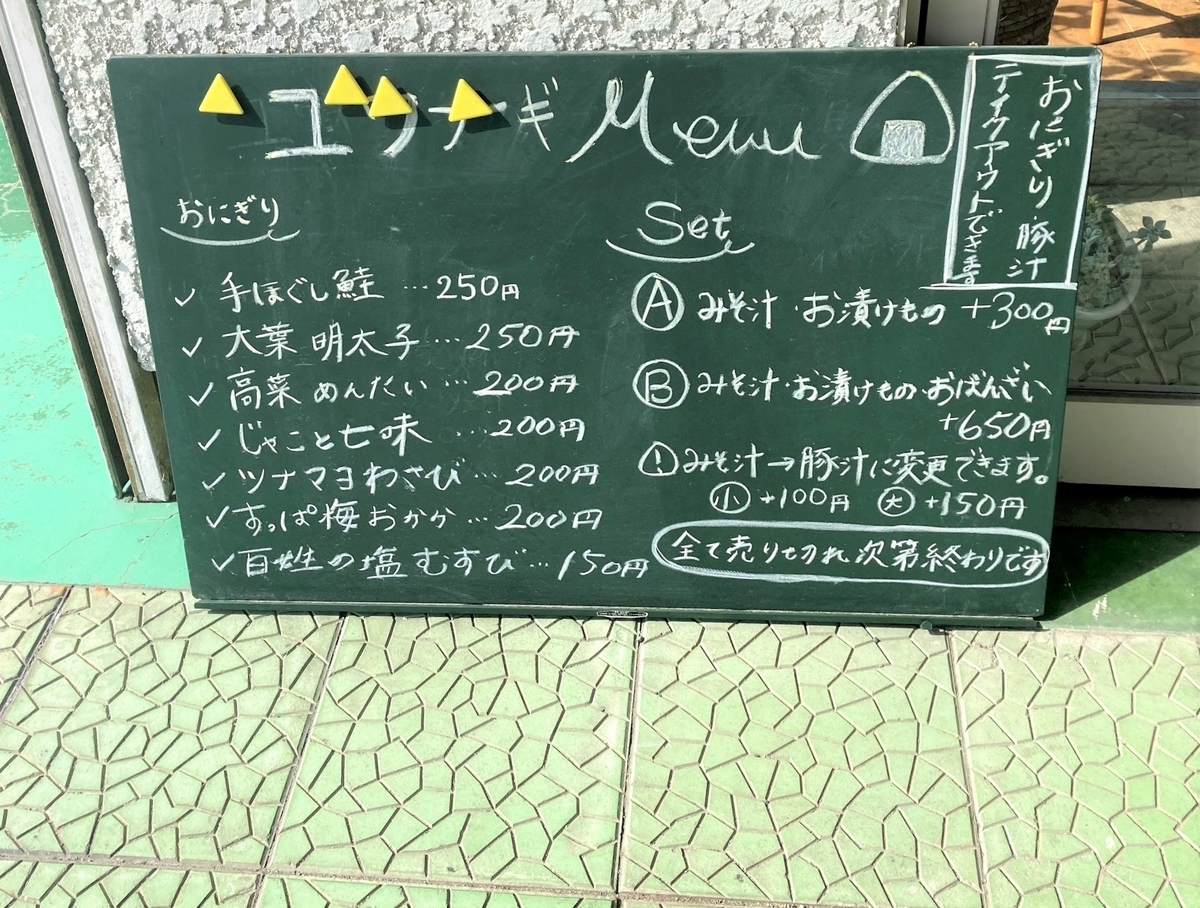 ユウナギ Menu
おにぎり 豚汁
テイクアウトできます
おにぎり
✓ 手ほぐし鮭 … 250円
✓ 大葉 明太子 … 250円
✓ 高菜 めんたい … 200円
✓ じゃこと七味 … 200円
✓ ツナマヨわさび … 200円
✓ すっぱ梅おかか … 200円
✓ 百姓の塩むすび … 150円
Set
Ⓐ みそ汁・お漬けもの +300円
Ⓑ みそ汁・お漬けもの・おばんざい
+650円
! みそ汁→豚汁に変更できます。
小 +100円 大 +150円
全て売り切れ次第終わりです